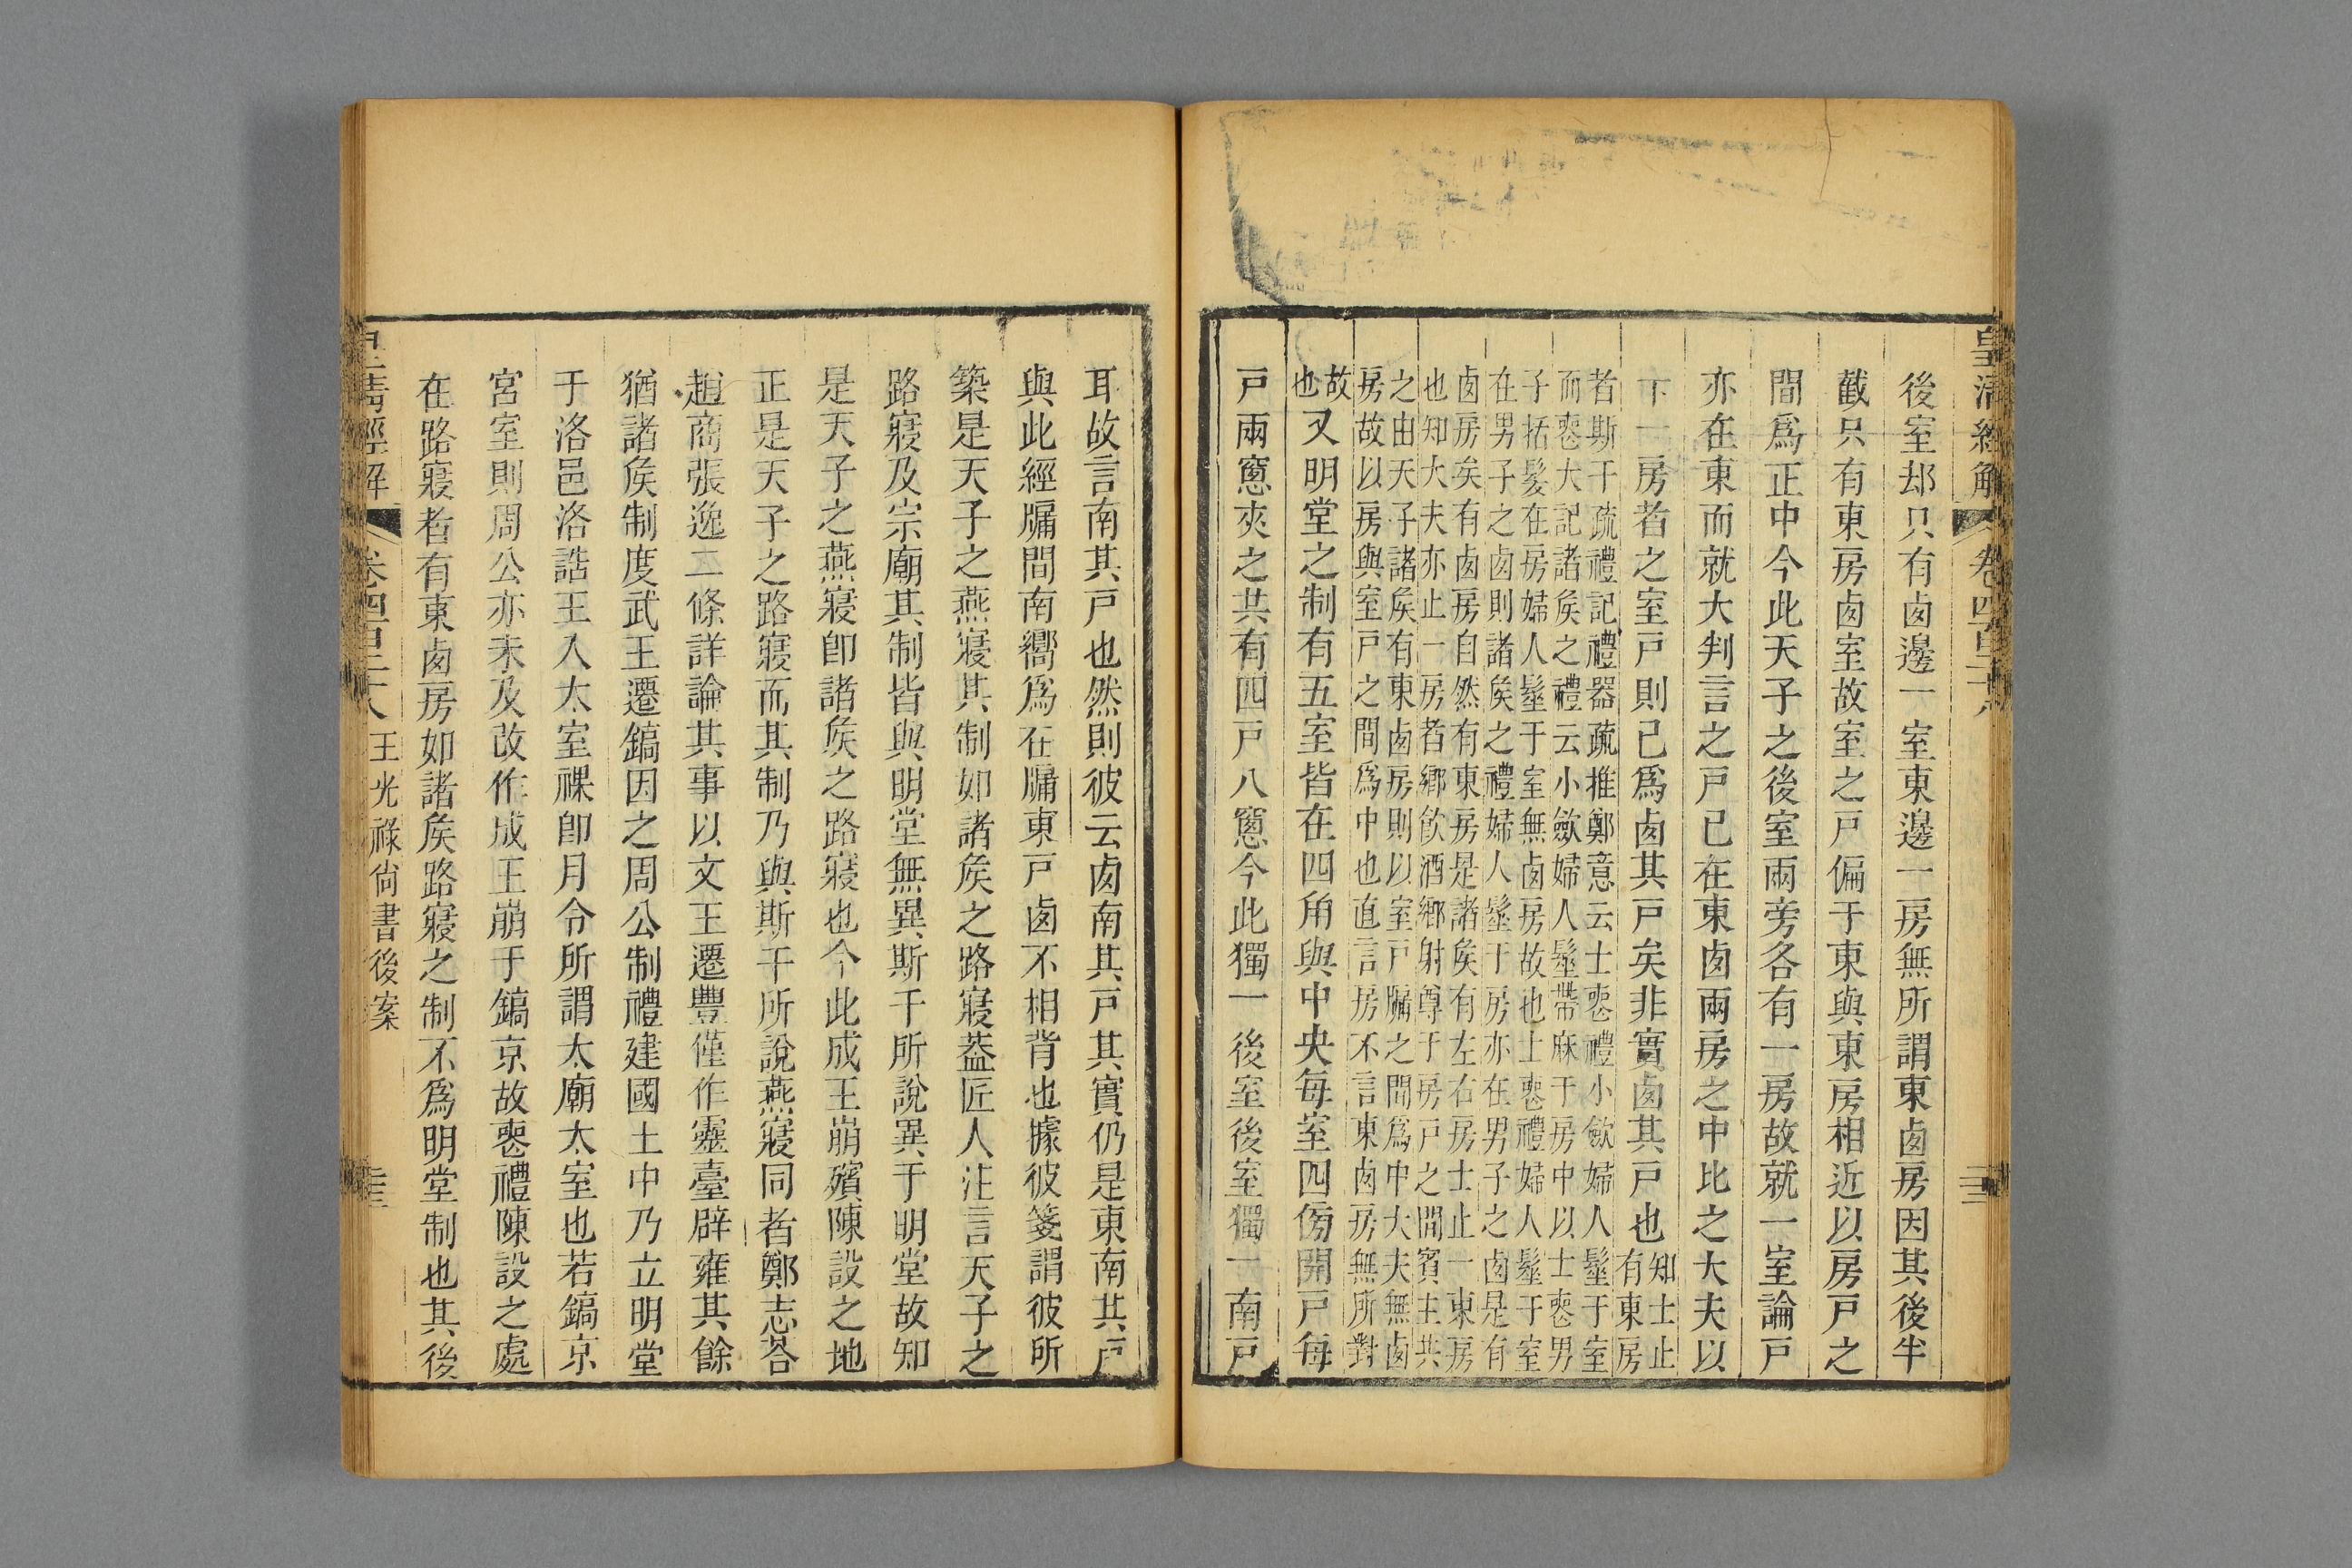 皇清經解 卷四百二十八
後室却只有卥邊一室東邊一房無所謂東卥房因其後半
截只有東房卥室故室之戸偏于東與東房相近以房戸之
間爲正中今此天子之後室兩旁各有一房故就一室論戸
亦在東而就大判言之戸已在東卥兩房之中比之大夫以
下一房者之室戸則已爲卥其戸矣非實卥其戸也知士止
有東房
者斯干疏禮記禮器疏推鄭意云士喪禮小斂婦人髽于室
而喪大記諸矦之禮云小斂婦人髽帶麻于房中以士喪男
子括髮在房婦人髽于室無卥房故也士喪禮婦人髽于室
在男子之卥則諸矦之禮婦人髽于房亦在男子之卥是有
卥房矣有卥房自然有東房是諸矦有左右房士止一東房
也知大夫亦止一房者鄉飲酒鄉射尊于房戸之間賓主共
之由天子諸矦有東卥房則以室戸牖之間爲中大夫無卥
房故以房與室戸之間爲中也直言房不言東卥房無所對
故
也又明堂之制有五室皆在四角與中央每室四傍開戸每
戸兩窻夾之共有四戸八窻今此獨一後室後室獨一南戸
耳故言南其戸也然則彼云卥南其戸其實仍是東南其戸
與此經牖間南嚮爲在牖東戸卥不相背也據彼箋謂彼所
築是天子之燕寢其制如諸矦之路寢葢匠人注言天子之
路寢及宗廟其制皆與明堂無異斯干所說異于明堂故知
是天子之燕寢卽諸矦之路寢也今此成王崩殯陳設之地
正是天子之路寢而其制乃與斯干所說燕寢同者鄭志荅
趙商張逸二條詳論其事以文王遷豐僅作靈臺辟雍其餘
猶諸矦制度武王遷鎬因之周公制禮建國土中乃立明堂
于洛邑洛誥王入太室祼卽月令所謂太廟太室也若鎬京
宮室則周公亦未及改作成王崩于鎬京故喪禮陳設之處
在路寢者有東卥房如諸矦路寢之制不爲明堂制也其後
皇清經解 卷四百二十八 王光祿尙書後案